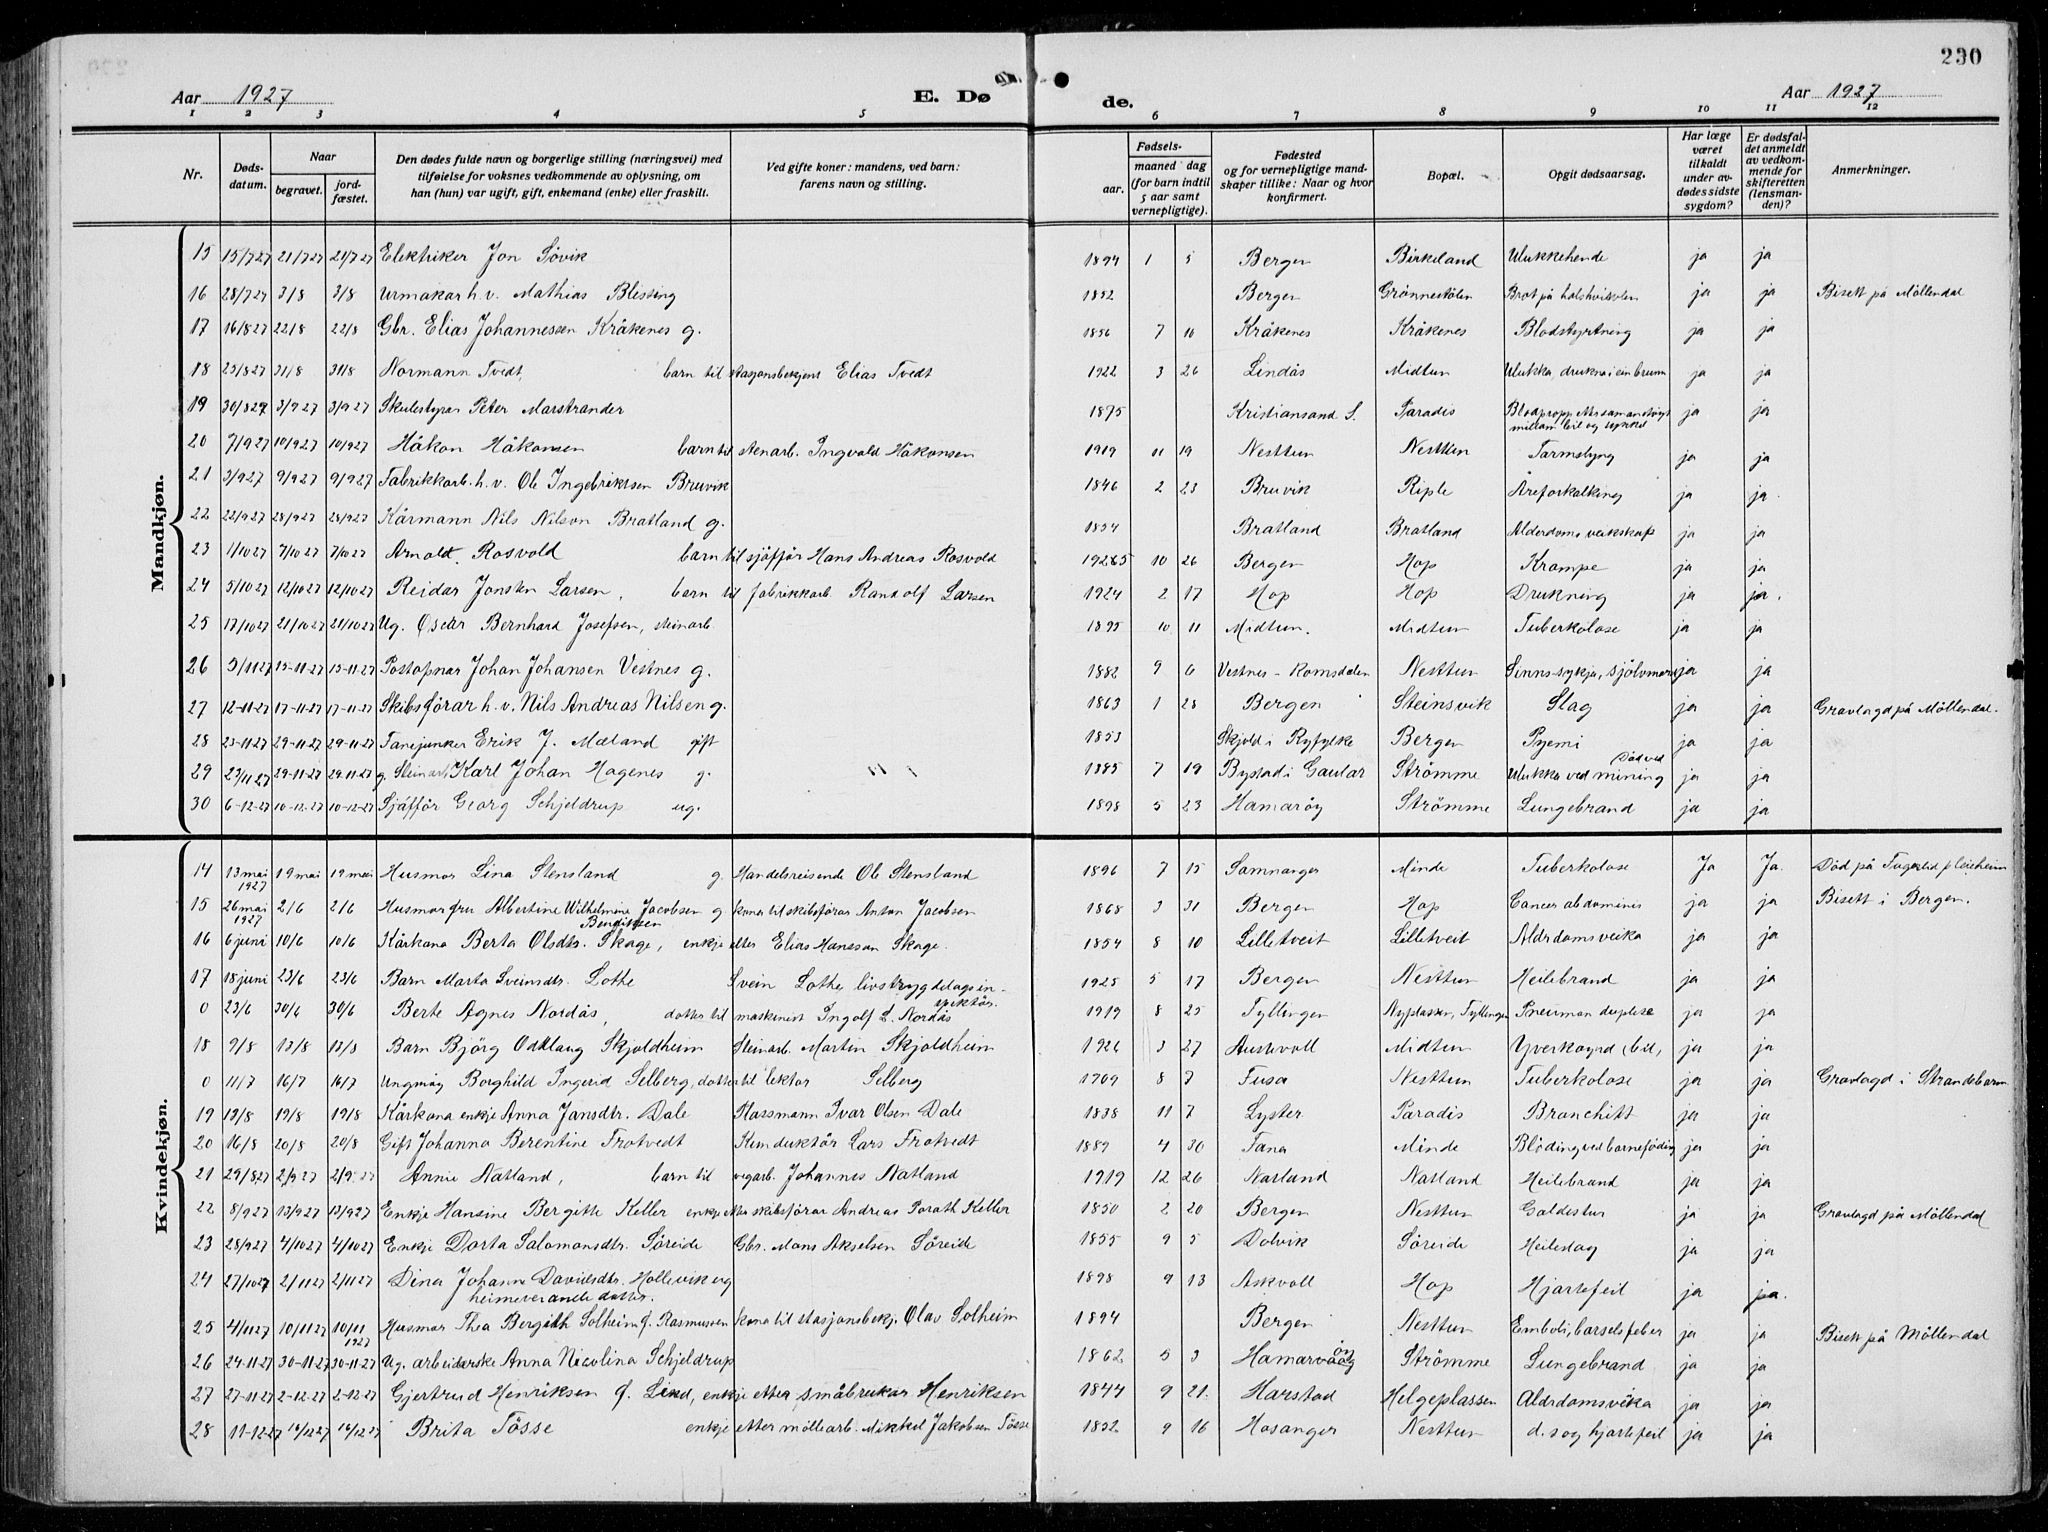 230
Aar 1927
E. Døde.
Aar 1927
1 2 3 4 5 6 7 8 9 10 11 12
Nr.
Døds-datum.
Naar
begravet.
jord-fæstet.
Den dødes fulde navn og borgerlige stilling (næringsvei) med
tilføielse for voksnes vedkommende av oplysning, om
han (hun) var ugift, gift, enkemand (enke) eller fraskilt.
Ved gifte koner: mandens, ved barn:
farens navn og stilling.
Fødsels-
aar.
maaned dag
(for barn indtil
5 aar samt
vernepligtige).
Fødested
og for vernepligtige mand-
skaper tillike: Naar og hvor
konfirmert.
Bopæl.
Opgit dødsaarsag.
Har læge
været
tilkaldt
under av-
dødes sidste
sygdom?
Er dødsfal-
det anmeldt
av vedkom-
mende for
skifteretten
(lensman-
den)?
Anmerkninger.
Mandkjøn.
15 15/7 27 21/7 27 21/7 27 Elektriker Jon Søvik 1894 1 5 Bergen Birkeland Ulukkehende ja ja
16 28/7 27 3/8 3/8 Urmakar h.v. Mathias Blessing 1852 Bergen Grönnestölen Brot på halshvirvlen ja ja Bisett på Möllendal
17 16/8 27 22/8 22/8 Gbr. Elias Johannessen Kråkenes g. 1856 7 10 Kråkenes Kråkenes Blodstyrtning ja ja
18 25/8 27 31/8 31/8 Normann Tvedt, barn til stasjonsbekjent Elias Tvedt 1922 3 26 Lindås Midtun Ulukka, drukna i ein brunn ja ja
19 30/8 27 3/9 27 3/9 27 Skulestyrar Peter Marstrander 1875 Kristiansand S. Paradis Blodpropp etter samanstöyt
millom bil og sykkel ja ja
20 7/9 27 10/9 27 10/9 27 Håkon Håkonsen barn til stenarb. Ingvald Håkonsen 1919 11 19 Nesttun Nesttun Tarmslyng ja ja
21 3/9 27 9/9 27 9/9 27 Fabrikkarb. h.v. Ole Ingebriktsen Bruvik 1846 2 23 Bruvik Riple Åreforkalking ja ja.
22 22/9 27 28/9 27 28/9 27 Kårmann Nils Nilson Bratland g. 1854 Bratland Bratland Alderdoms veikskap ja ja
23 1/10 27 7/10 27 7/10 27 Arnold Rosvold barn til sjåffør Hans Andreas Rosvold 19265 10 26 Bergen Hop Krampe ja ja
24 5/10 27 12/10 27 12/10 27 Reidar Jonsten Larsen, barn til fabrikkarb Randolf Larsen 1924 2 17 Hop Hop Drukning ja ja.
25 17/10 27 21/10 27 21/10 27 Ug. Oscar Bernhard Josefsen, steinarb 1895 10 11 Midtun. Midtun Tuberkolose ja ja
26 9/11 27 15-11-27 15-11-27 Postopnar Johan Johansen Vestnes g. 1882 9 6 Vestnes - Romsdalen Nesttun Sinns-sykja, sjölvmord ja ja
27 12-11-27 17-11-27 17-11-27 Skibsförar h.v. Nils Andreas Nilsen g. 1863 1 28 Bergen Steinsvik Slag ja ja Gravlagd på Möllendal.
28 23-11-27 29-11-27 29-11-27 Fanejunker Erik J. Mæland gift 1853 Skjold i Ryfylke Bergen Pyemi ja ja
29 23/11 27 29-11-27 29-11-27 g. Steinarb. Karl Johan Hagenes g. 1885 7 19 Bystad i Gaular Strömme Död ved
Ulukka ved mining ja ja
30 6-12-27 10-12-27 10-12-27 Sjåffør Georg Schjeldrup ug. 1898 5 23 Hamaröy Strömme Lungebrand ja ja
Kvindekjøn.
14 13 mai 1927 19 mai 19 mai Husmor Lina Stensland g. Handelsreisende Ole Stensland 1896 7 15 Samnanger Minde Tuberkolose Ja Ja. Död på pleieheim
15 26 mai 1927 2/6 2/6 Husmor fru Albertine Wilhelmine Jacobsen g kona til skibsförar Anton Jacobsen 1868 3 31 Bergen Hop Cancer abdominis ja ja Bisett i Bergen.
Bendiktsen
16 6 juni 10/6 10/6 Kårkona Berta Olsdtr. Skage, enkje etter Elias Hansson Skage 1854 8 10 Lilletveit Lilletveit Aldrdomsveika ja ja
17 18 juni 23/6 23/6 Barn Marta Sveinsdtr. Lothe Svein Lothe livstrygdelagsin-
spektör. 1925 5 17 Bergen Nesttun Heilebrand ja ja
0 23/6 30/6 30/6 Berte Agnes Nordås, dotter til maskinist Ingolf L. Nordås 1919 8 25 Tyllingen Nyplassen, Tyllingen Pneumon duplese ja ja
18 9/8 13/8 13/8 Barn Björg Oddlaug Skjoldheim Steinarb. Martin Skjoldheim 1926 3 27 Austvoll Midtun Yverkøyrd (bil, ja ja
0 11/7 16/7 16/7 Ungmöy Borghild Ingerid Selberg, dotter til lektor Selberg 1909 8 7 Fusa Nesttun Tuberkolose ja ja Gravlagd i Strandebarm
19 12/8 19/8 19/8 Kårkona enkje Anna Jansdtr. Dale Plassmann Ivar Olsen Dale 1838 11 7 Lyster Paradis Bronchitt ja ja
20 16/8 20/8 20/8 Gift Johanna Berentine Frotvedt Konduktör Lars Frotvedt 1889 4 30 Fana Minde Blöding ved barneföding ja ja
21 29/8 27 2/9 27 2/9 27 Annie Natland, barn til vegarb. Johannes Natland 1919 12 26 Natland Natland Heilebrand ja ja
22 8/9 27 13/9 27 13/9 27 Enkje Hansine Bergitte Keller enkje etter skibsförar Andreas Porath Keller 1850 2 20 Bergen Nesttun Galdestein ja ja Gravlagd på Möllendal
23 28/9 27 4/10 27 4/10 27 Enkje Dorta Salomonsdtr. Söreide Gbr. Mons Akselsen Söreide 1855 9 5 Dolvik Söreide Heileslag ja ja
24 27/10 27 2/11 27 2/11 27 Dina Johanne Davidsdtr. Hollevik ug
heimeverande dotter. 1898 9 13 Askvoll Hop Hjartefeil ja ja.
25 4/11 27 10/11 27 10/11 1927 Husmor Thea Bergith Solheim f. Rasmussen kona til stasjonsbekj. Olav Solheim 1894 Bergen Nesttun Emboli, barselsfeber ja ja Bisett på Möllendal
26 24-11-27 30-11-27 30-11-27 Ug. arbeiderske Anna Nicolina Schjeldrup 1862 5 3 Hamaröy Strömme Lungebrand ja ja
27 27-11-27 2-12-27 2-12-27 Gjertrud Henriksen f. Lind, enkje etter småbrukar Henriksen 1844 9 21. Harstad Helgeplassen Aldrdomsveika ja ja
28 11-12-27 16/12 27 16/12 27 Brita Tösse enkje etter möllearb. Mikkel Jakobsen Tösse 1852 9 16 Hosanger Nesttun d.s og hjartefeil ja ja